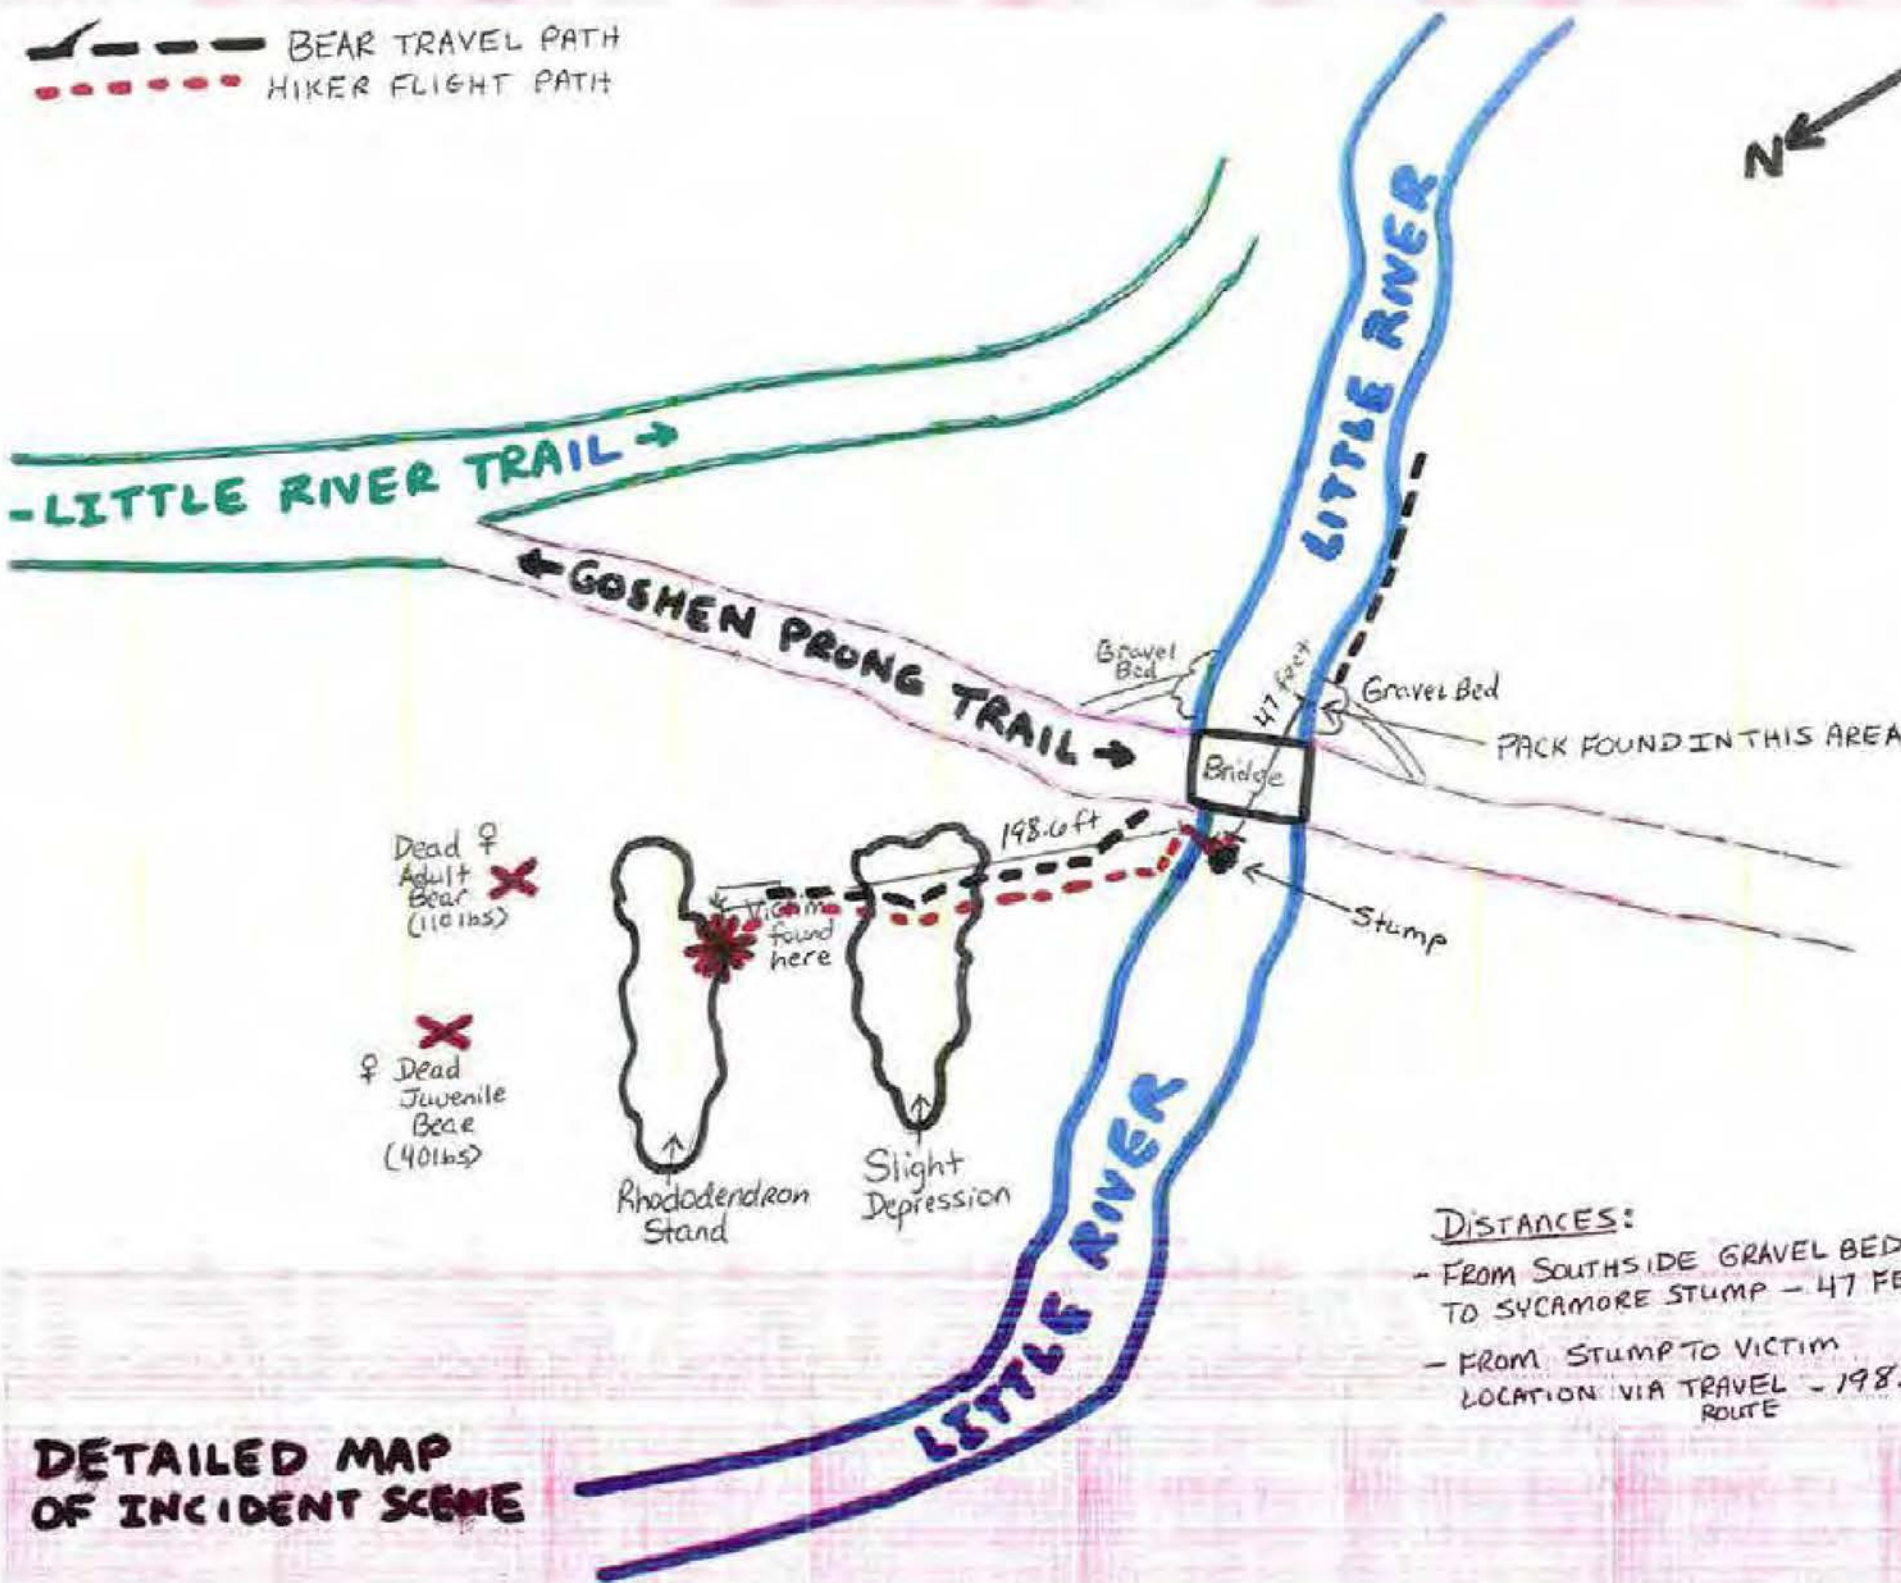 BEAR TRAVEL PATH
HIKER FLIGHT PATH
N
LITTLE RIVER
-LITTLE RIVER TRAIL →
← GOSHEN PRONG TRAIL →
Gravel
Bed
47 feet
Gravel Bed
PACK FOUND IN THIS AREA
Bridge
198.6 ft
Dead ♀
Adult
Bear
(110 lbs)
Victim
found
here
Stump
♀ Dead
Juvenile
Bear
(40 lbs)
Rhododendron
Stand
Slight
Depression
LITTLE RIVER
LITTLE RIVER
DISTANCES:
- FROM SOUTHSIDE GRAVEL BED
TO SYCAMORE STUMP - 47 FE
- FROM STUMP TO VICTIM
LOCATION VIA TRAVEL - 198.
ROUTE
DETAILED MAP
OF INCIDENT SCENE